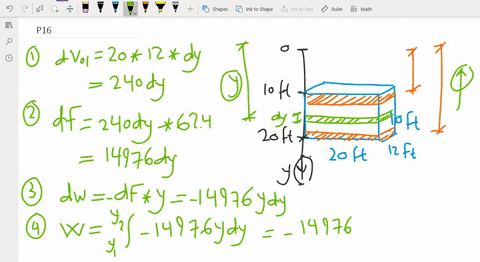 Shapes
Ink to Shape
Ink to Text
P16
① dVol = 20 * 12 * dy
= 240 dy
② dF = 240dy * 62.4
= 14976 dy
③ dw = -dF * y = -14976 ydy
④ W = y₁∫y₂ -14976 ydy = -14976
y
0
10 ft
dy I
20 ft
y
10 ft
20 ft
12 ft